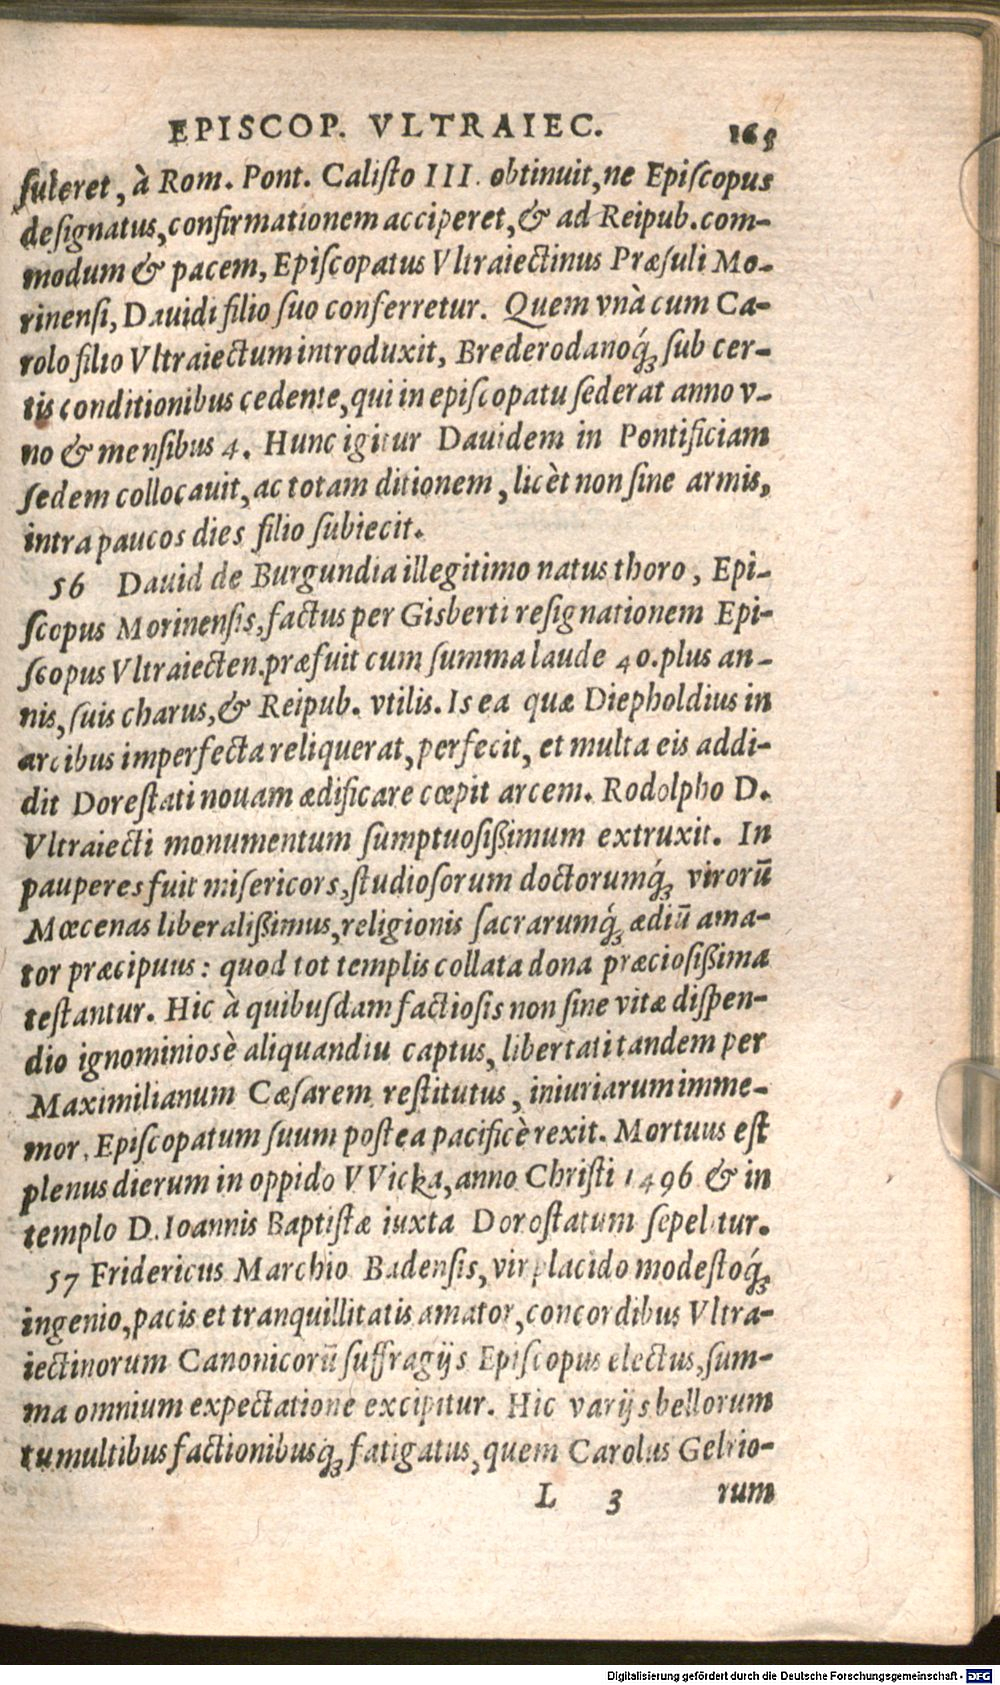 EPISCOP. VLTRAIEC. 165
ſuleret, à Rom. Pont. Caliſto III. obtinuit, ne Epiſcopus
deſignatus, confirmationem acciperet, & ad Reipub. com-
modum & pacem, Epiſcopatus Vltraiectinus Præſuli Mo-
rinenſi, Dauidi filio ſuo conferretur. Quem vnà cum Ca-
rolo filio Vltraiectum introduxit, Brederodanoq́ꝫ ſub cer-
tis conditionibus cedente, qui in epiſcopatu ſederat anno v-
no & menſibus 4. Hunc igitur Dauidem in Pontificiam
ſedem collocauit, ac totam ditionem, licèt non ſine armis,
intra paucos dies filio ſubiecit.
56 Dauid de Burgundia illegitimo natus thoro, Epi-
ſcopus Morinenſis, factus per Gisberti reſignationem Epi-
ſcopus Vltraiecten. præfuit cum ſumma laude 40. plus an-
nis, ſuis charus, & Reipub. vtilis. Is ea quæ Diepholdius in
arcibus imperfecta reliquerat, perfecit, et multa eis addi-
dit Doreſtati nouam ædificare cœpit arcem. Rodolpho D.
Vltraiecti monumentum ſumptuoſißimum extruxit. In
pauperes fuit miſericors, ſtudioſorum doctorumq́ꝫ virorū
Mœcenas liberalißimus, religionis ſacrarumq́ꝫ ædiū ama-
tor præcipuus: quod tot templis collata dona præcioſißima
teſtantur. Hic à quibuſdam factioſis non ſine vitæ diſpen-
dio ignominiosè aliquandiu captus, libertati tandem per
Maximilianum Cæſarem reſtitutus, iniuriarum imme-
mor, Epiſcopatum ſuum poſtea pacificè rexit. Mortuus eſt
plenus dierum in oppido VVicka, anno Chriſti 1496 & in
templo D. Ioannis Baptiſtæ iuxta Doroſtatum ſepelitur.
57 Fridericus Marchio Badenſis, vir placido modeſtoq́ꝫ
ingenio, pacis et tranquillitatis amator, concordibus Vltra-
iectinorum Canonicorū ſuffragijs Epiſcopus electus, ſum-
ma omnium expectatione excipitur. Hic varijs bellorum
tumultibus factionibusq́ꝫ fatigatus, quem Carolus Gelrio-
L 3 rum
Digitalisierung gefördert durch die Deutsche Forschungsgemeinschaft - DFG